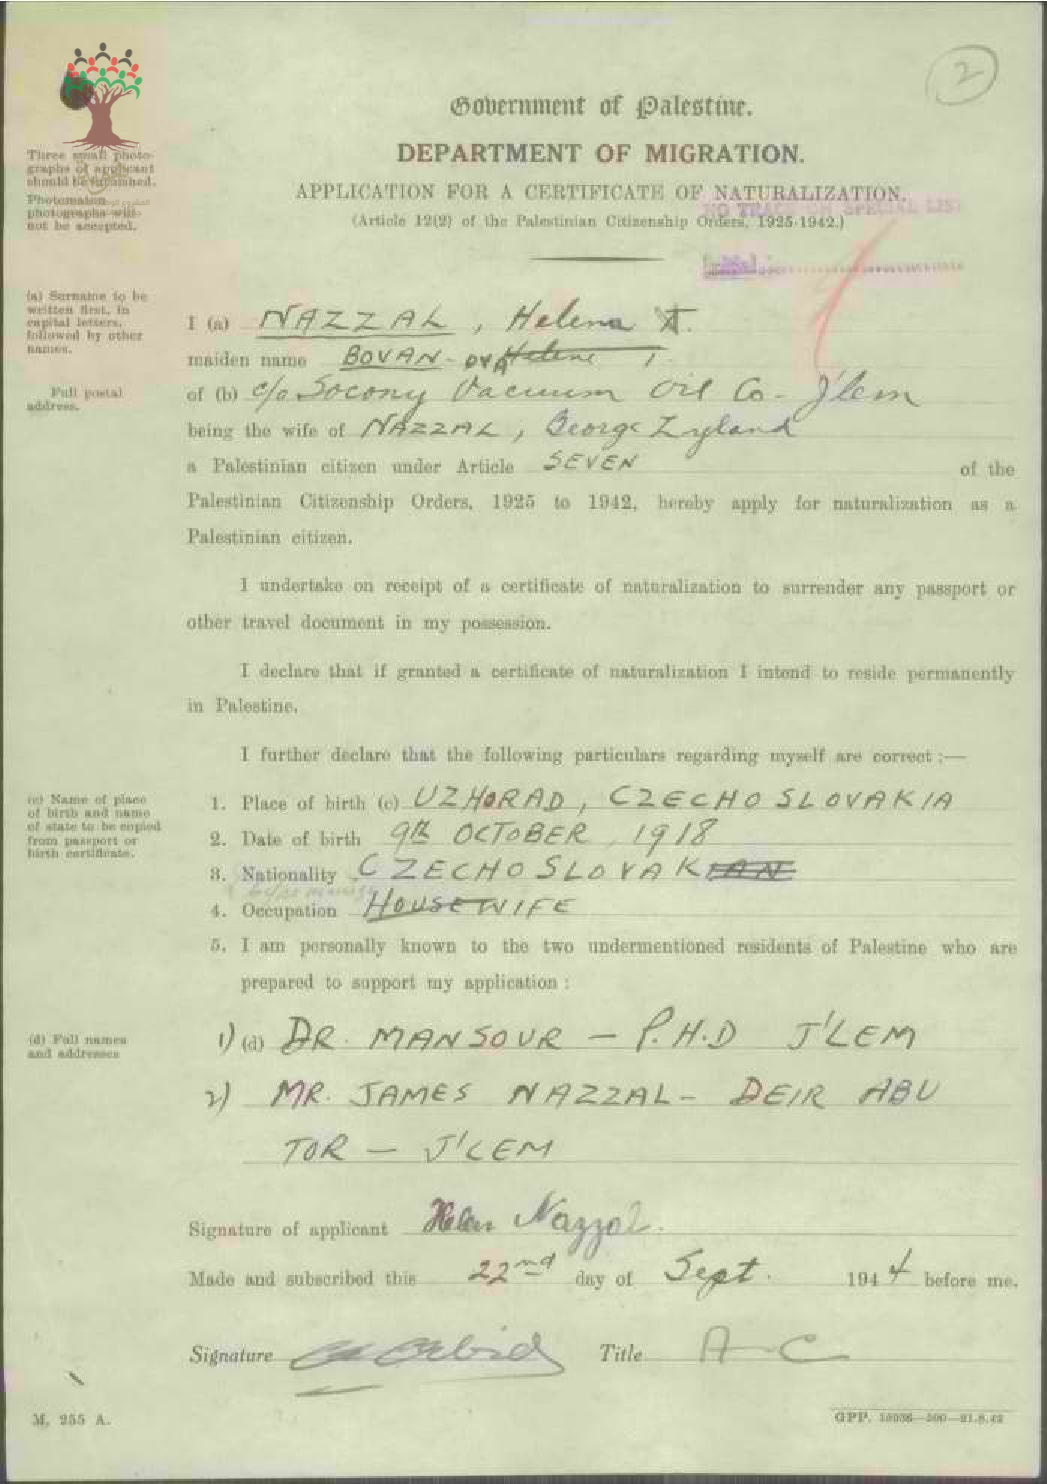 2
Government of Palestine.
DEPARTMENT OF MIGRATION.
APPLICATION FOR A CERTIFICATE OF NATURALIZATION.
NO TRACE ON SPECIAL LIST
(Article 12(2) of the Palestinian Citizenship Orders, 1925-1942.)
Three small photo-
graphs of applicant
should be furnished.
Photomaton
photographs will
not be accepted.
(a) Surname to be
written first, in
capital letters,
followed by other
names.
I (a) NAZZAL, Helena
maiden name BOVAN- Helene
Full postal
address.
of (b) c/o Socony Vacuum Oil Co- J'lem
being the wife of NAZZAL, George
a Palestinian citizen under Article SEVEN of the
Palestinian Citizenship Orders, 1925 to 1942, hereby apply for naturalization as a
Palestinian citizen.
I undertake on receipt of a certificate of naturalization to surrender any passport or
other travel document in my possession.
I declare that if granted a certificate of naturalization I intend to reside permanently
in Palestine.
I further declare that the following particulars regarding myself are correct :—
(c) Name of place
of birth and name
of state to be copied
from passport or
birth certificate.
1. Place of birth (c) UZHORAD, CZECHOSLOVAKIA
2. Date of birth 9th OCTOBER, 1918
3. Nationality CZECHOSLOVAKIAN
4. Occupation HOUSEWIFE
5. I am personally known to the two undermentioned residents of Palestine who are
prepared to support my application :
(d) Full names
and addresses
1) (d) DR. MANSOUR — P.H.D J'LEM
2) MR. JAMES NAZZAL- DEIR ABU
TOR — J'LEM
Signature of applicant Helen Nazzal.
Made and subscribed this 22nd day of Sept. 1944 before me.
Signature Title A-C
M. 255 A.
GPP. 15036—500—21.8.42